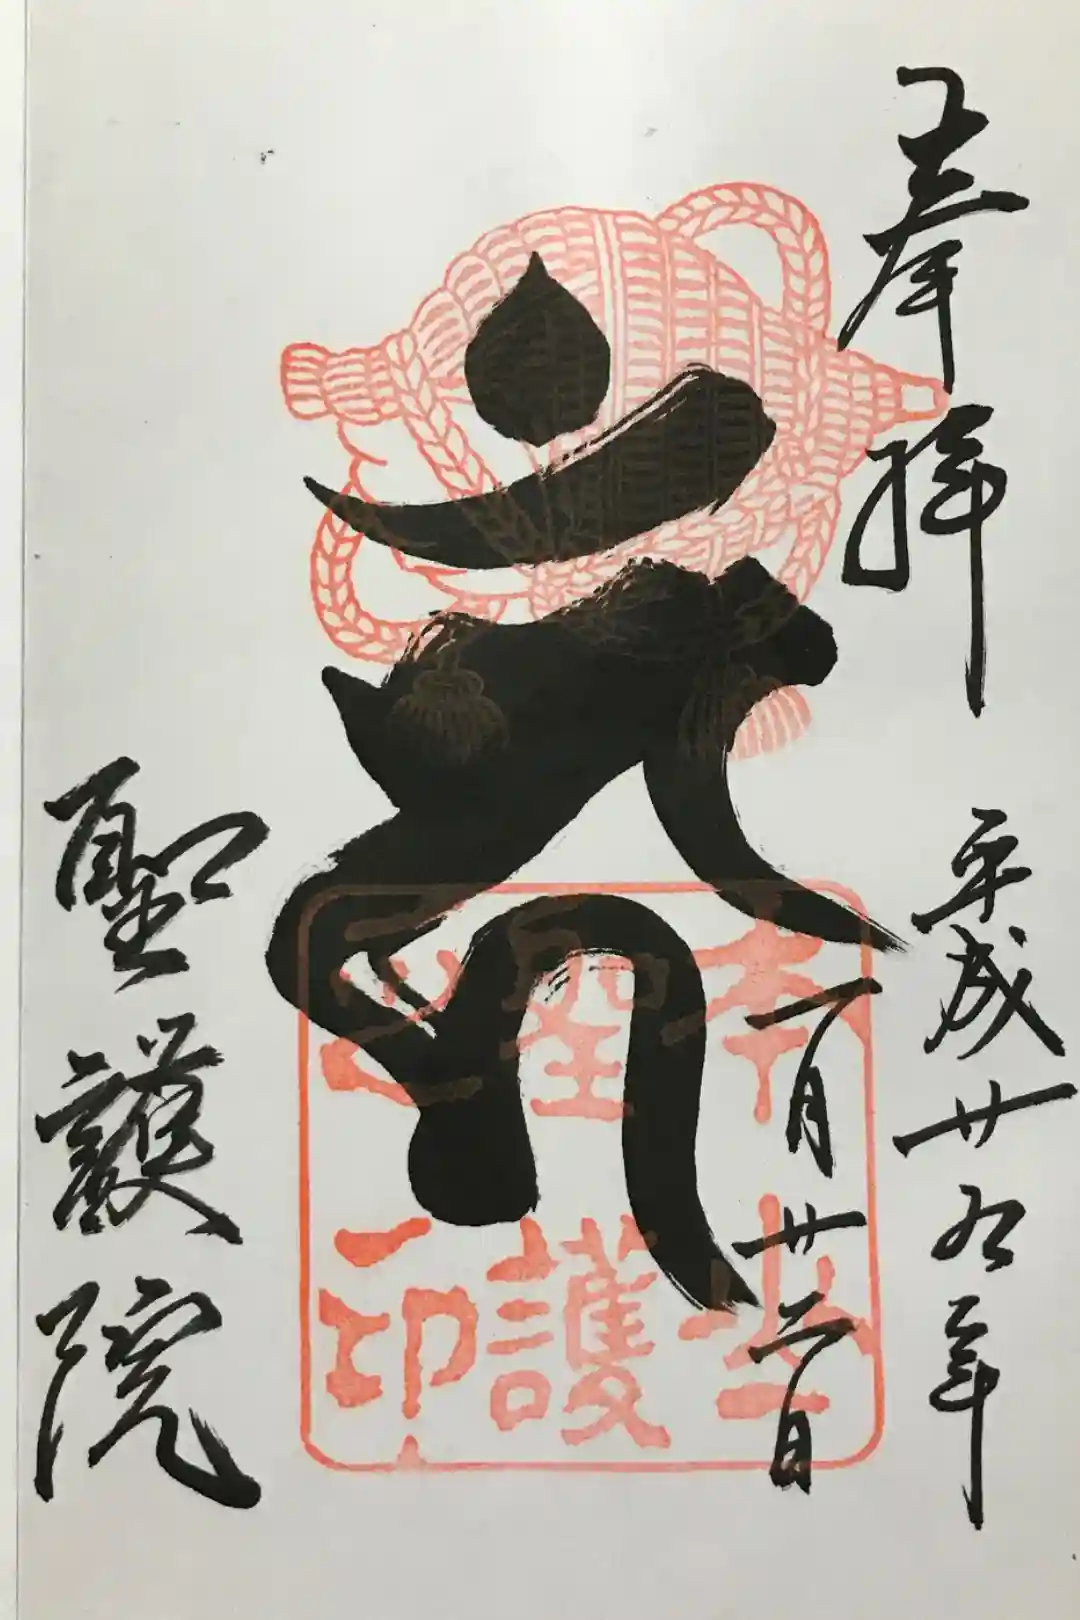 奉拝
平成廿九年
一月廿二日
𑖮𑖳𑖽
本山
聖護
之印
聖護院